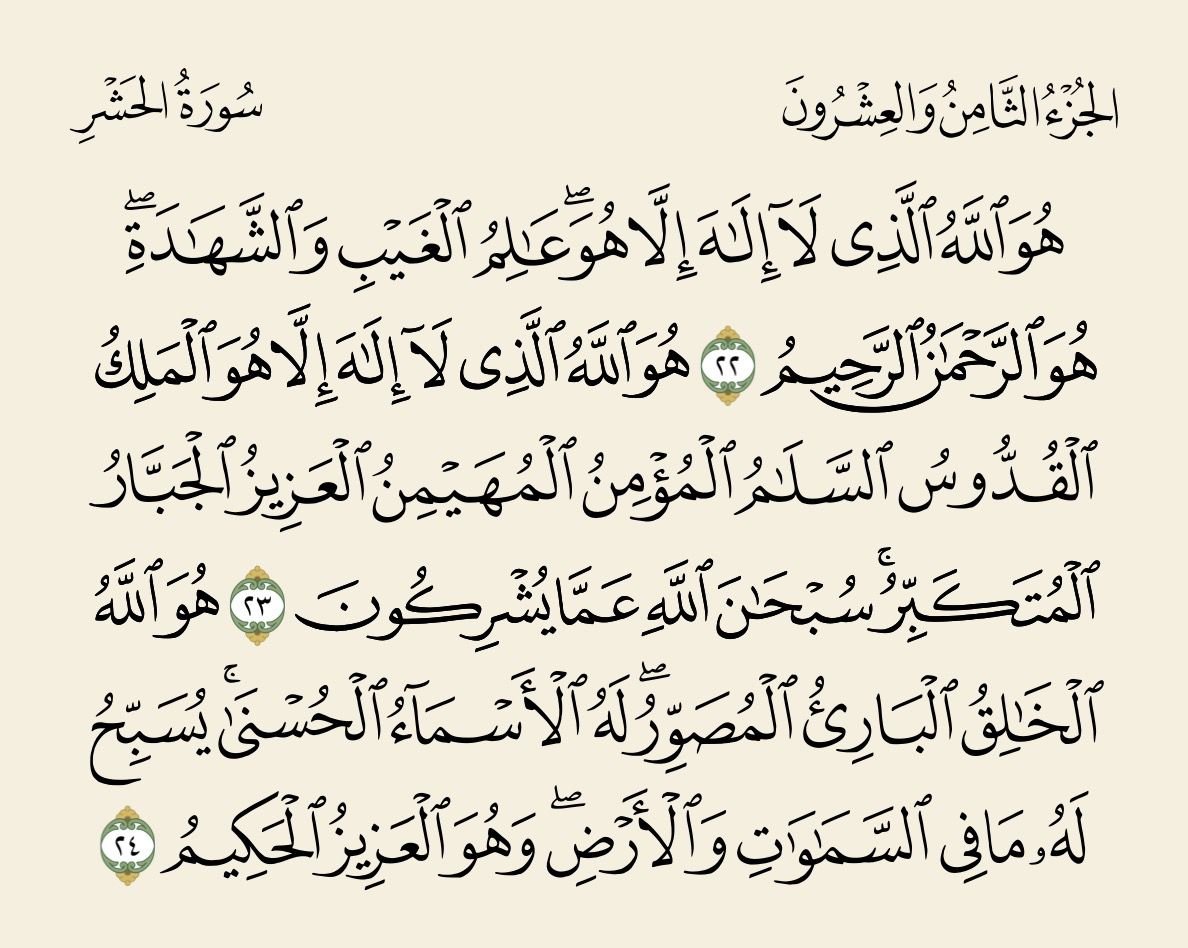 الجُزْءُ الثَّامِنُ وَالعِشْرُونَ
سُورَةُ الحَشْرِ
هُوَ ٱللَّهُ ٱلَّذِى لَآ إِلَـٰهَ إِلَّا هُوَۖ عَـٰلِمُ ٱلْغَيْبِ وَٱلشَّهَـٰدَةِۖ
هُوَ ٱلرَّحْمَـٰنُ ٱلرَّحِيمُ ٢٢ هُوَ ٱللَّهُ ٱلَّذِى لَآ إِلَـٰهَ إِلَّا هُوَ ٱلْمَلِكُ
ٱلْقُدُّوسُ ٱلسَّلَـٰمُ ٱلْمُؤْمِنُ ٱلْمُهَيْمِنُ ٱلْعَزِيزُ ٱلْجَبَّارُ
ٱلْمُتَكَبِّرُۚ سُبْحَـٰنَ ٱللَّهِ عَمَّا يُشْرِكُونَ ٢٣ هُوَ ٱللَّهُ
ٱلْخَـٰلِقُ ٱلْبَارِئُ ٱلْمُصَوِّرُۖ لَهُ ٱلْأَسْمَآءُ ٱلْحُسْنَىٰۚ يُسَبِّحُ
لَهُۥ مَا فِى ٱلسَّمَـٰوَٰتِ وَٱلْأَرْضِۖ وَهُوَ ٱلْعَزِيزُ ٱلْحَكِيمُ ٢٤